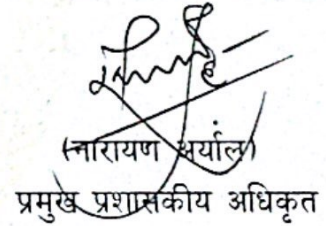 (नारायण अर्याल)
प्रमुख प्रशासकीय अधिकृत